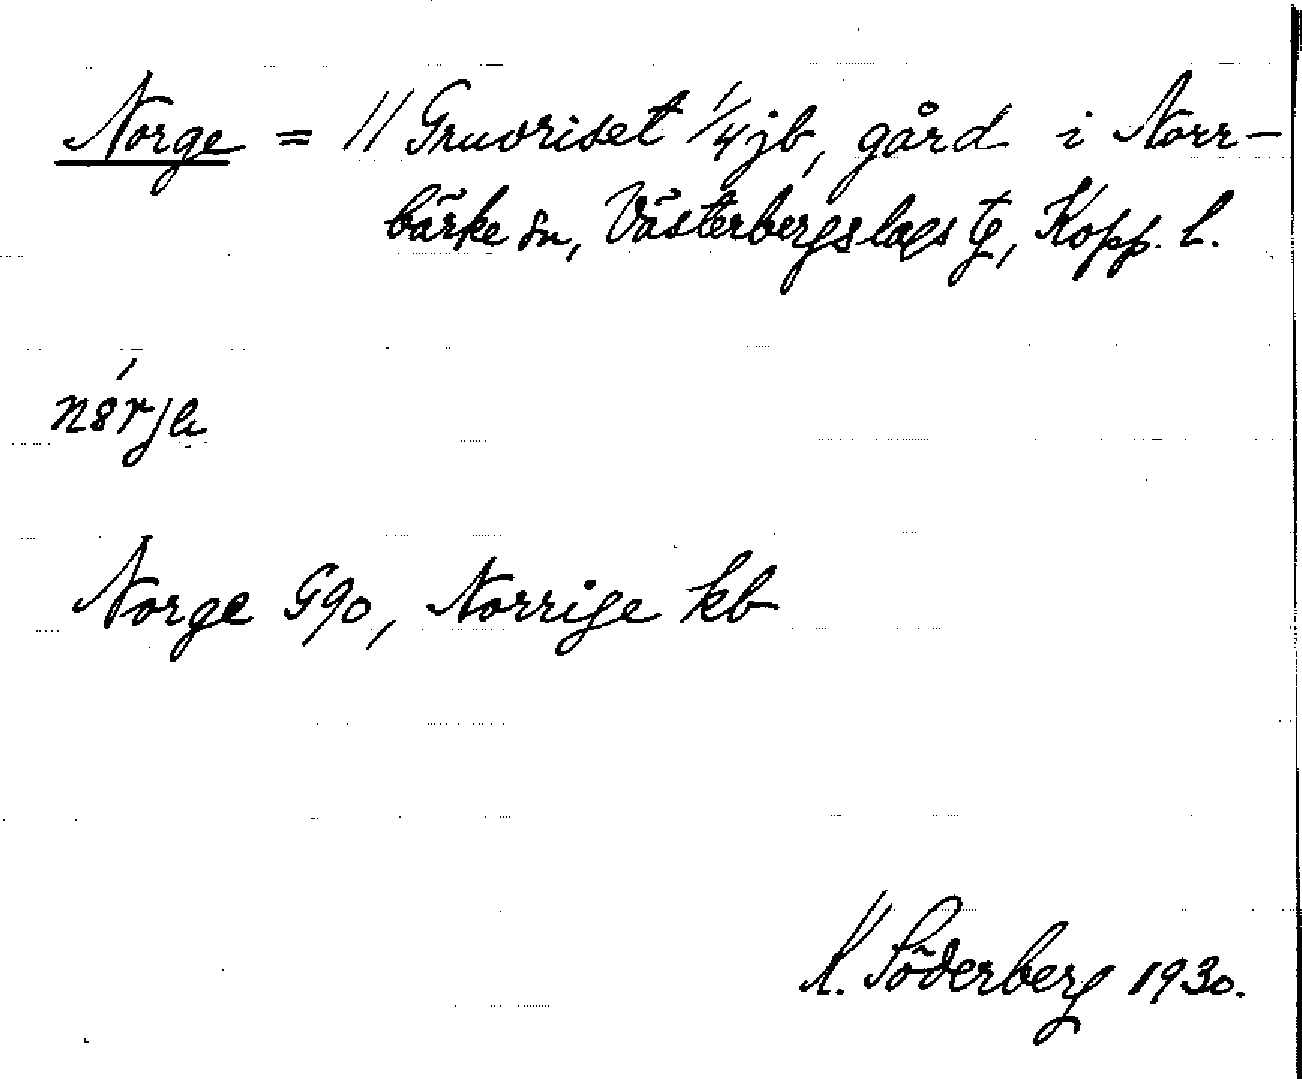 Norge = // Gruvriset 1/4 jb, gård i Norr-
bärke sn, Västerbergslags tg, Kopp. l.
nørja
Norge G90, Norrige kb
K. Söderberg 1930.